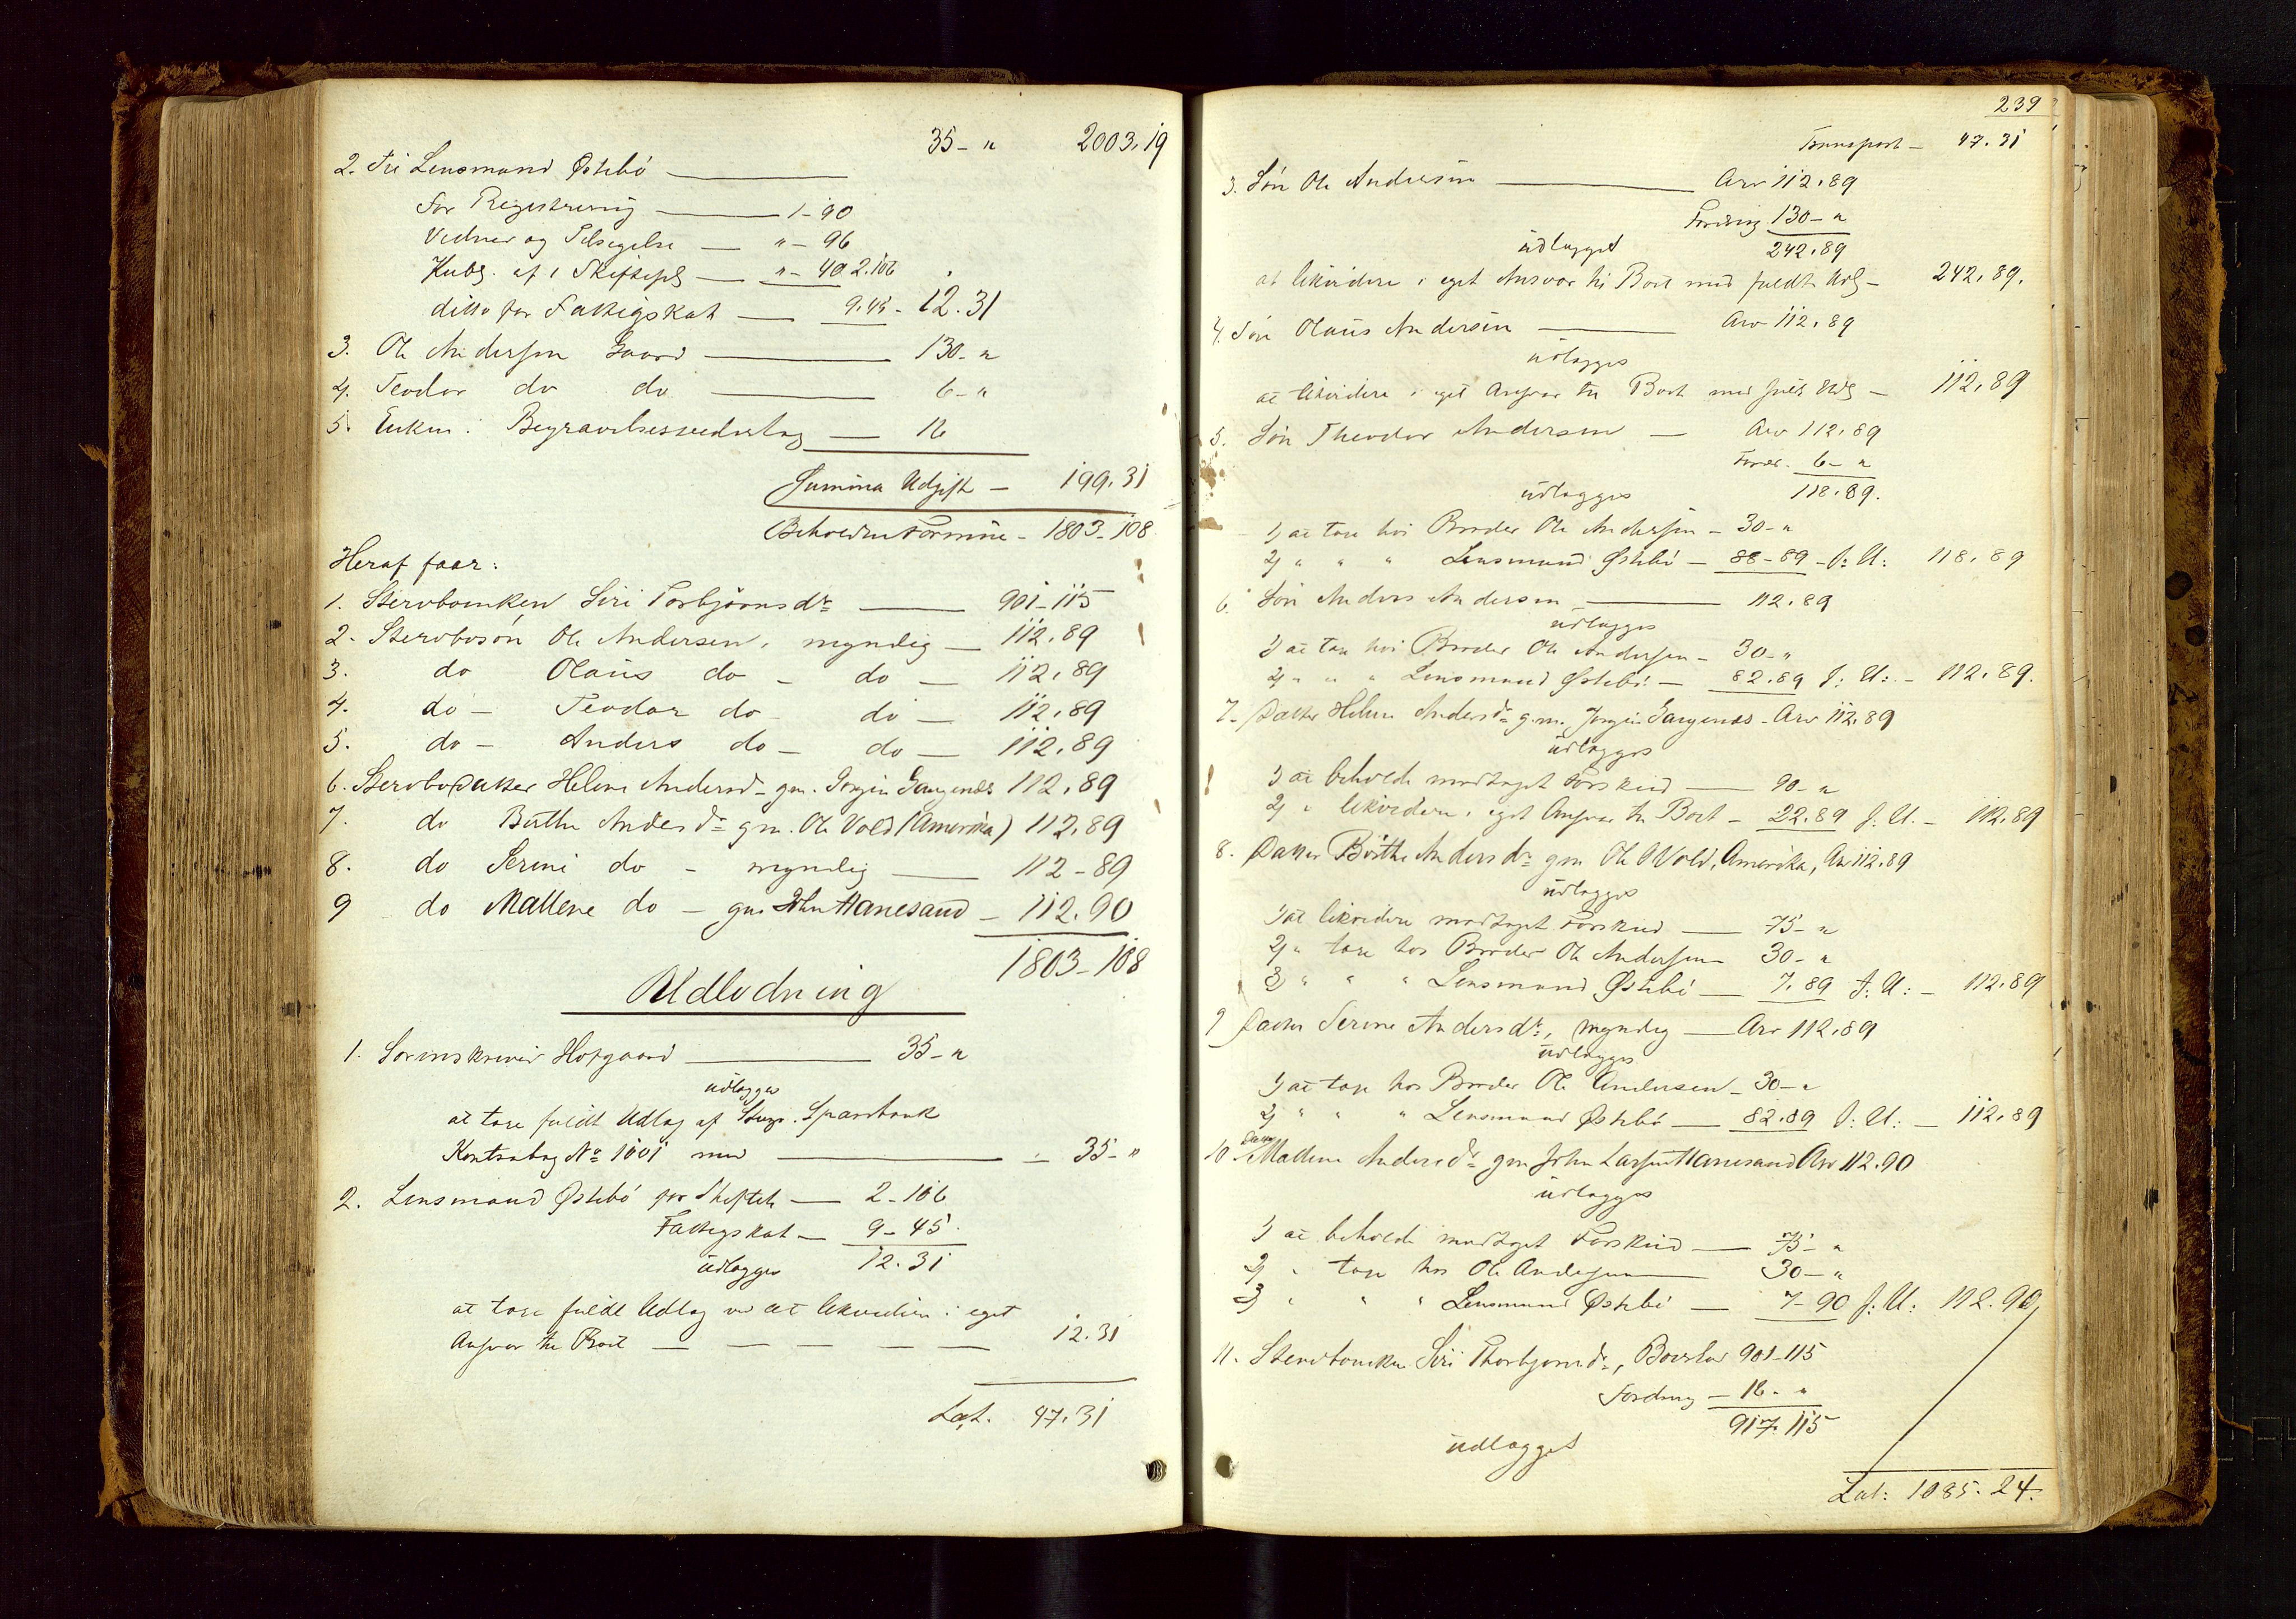 35 - " 2003.19
2. Til Lensmand Østebö —
for Registrering — 1-90
Vidner og Tilsigelse — " - 96
Kubs. af 1 Skiftepg — " - 40 2.106
ditto for Fattigskat — 9.45 - 12.31
3. Ole Andersen Gaard — 130 - "
4. Teodor do do — 6 - "
5. Enken: Begravelsesvederlag — 16
Summa Udgift — 199.31
Beholden Formue - 1803-108
Heraf faar:
1. Stervboenken Siri Torbjørnsdr — 901-115
2. Stervbosön Ole Andersen, myndig — 112.89
3. do Olaus do - do — 112.89
4. do - Teodor do - do — 112.89
5. do - Anders do - do — 112.89
6. Stervbodatter Helene Andersd - gm. Jörgen Gaugenæs 112.89
7. do Berthe Andersdr gm. Ole Vold (Amerika) 112.89
8. do Serine do - myndig — 112-89
9 do Mallene do - gm John Hanesand — 112.90
1803-108
Udlodning
1. Sorenskriver Hofgaard — 35 - "
udlægges
at tage fuldt Udlag af Stavgr. Sparebank
Kontrabog No 1001 med — 35 - "
2. Lensmand Østebö for Skiftet — 2-106
Fattigskat — 9-45
udlægges 12.31
at tage fuldt Udlag ved at likvidere i eget
Ansvar til Boet — — — — — 12.31
Lat. 47.31
239
Transport — 47.31
3. Sön Ole Andersen — Arv 112.89
Fordring 130 - "
udlægget 242.89
at likvidere i eget Ansvar til Boet med fuldt Udlg — 242.89.
4. Sön Olaus Andersen — Arv 112.89
udlægges
at likvidere i eget Ansvar til Boet med fuldt Udlg — 112.89
5. Sön Theodor Andersen — Arv 112.89
Fordr. 6 - "
udlægges 118.89.
1) at tage hos Broder Ole Andersen - 30 - "
2) " " " Lensmand Østebö — 88-89 - f: U: 118.89
6. Sön Anders Andersen — 112.89
udlægges
1) at tage hos Broder Ole Andersen - 30 - "
2) " " " Lensmand Østebö — 82.89 f: U: - 112.89.
7. Datter Helene Andersdr g.m. Jörgen Gaugenæs - Arv 112.89
udlægges
1) at beholde modtaget Forskud — 90 - "
2) " likvidere i eget Ansvar til Boet - 22.89 f. U. - 112.89
8. Datter Berthe Andersdr gm Ole O Vold, Amerika, Arv 112.89
udlægges
1) at likvidere modtaget Forskud — 75 - "
2) " tage hos Broder Ole Andersen 30 - "
3) " " " Lensmand Østebö — 7.89 f: U: - 112.89
9 Datter Serine Andersdr, myndig — Arv 112.89
udlægges
1) at tage hos Broder Ole Andersen - 30 - "
2) " " " Lensmand Østebö — 82.89 f: U: — 112.89
10 Datter Mallene Andersdr gm John Larsen Hanesand Arv 112.90
udlægges
1) at beholde modtaget Forskud — 75 - "
2) " tage hos Ole Andersen — 30 - "
3) " " " Lensmand Østebö — 7-90 f: U: 112.90
11. Stervboenken Siri Thorbjørnsdr, Boeslod 901-115
Fordring — 16 - "
917.115
udlægget
Lat: 1085.24.